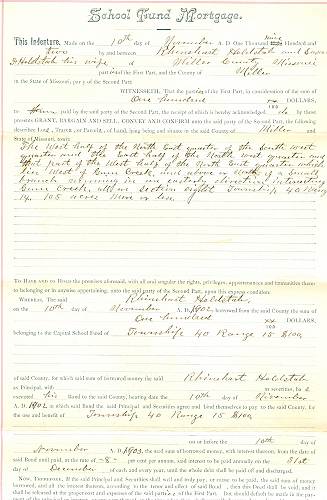 School Fund Mortgage.
This Indenture, Made on the 10th day of November A. D. One Thousand Nine Hundred and
two by and between Rhinehart Holdstah and
Holdstah his wife of Miller County Missouri
part of the First Part, and the County of Miller
in the State of Missouri, party of the Second Part.
WITNESSETH: That the part of the First Part, in consideration of the sum of
One hundred xx/100 DOLLARS,
to them paid by the said party of the Second Part, the receipt of which is hereby acknowledged do by these
presents GRANT, BARGAIN AND SELL, CONVEY AND CONFIRM unto the said party of the Second Part, the following
described Lot, Tract, or Parcel, of Land, lying being and situate in the said County of Miller and
State of Missouri, towit:
The West half of the North East quarter of the South west
quarter and the East half of the North west quarter and
that part of the West half of the North East quarter which
lies West of Gum Creek, and above or North of a Small
branch running in an easterly direction intersecting
Gum Creek, all in Section eight Township 40 Range
14. 108 acres More or less.
TO HAVE AND TO HOLD the premises aforesaid, with all and singular the rights, privileges, appurtenances and immunities there-
to belonging or in anywise appertaining, unto the said party of the Second Part, upon this express condition:
WHEREAS, The said Rhinehart Holdstah,
on the 10th day of November A. D. 1902, borrowed from the said County the sum of
One hundred xx/100 DOLLARS,
belonging to the Capital School Fund of Township 40 Range 15 $100,
of said county, for which said sum of borrowed money the said Rhinehart Holdstah
as Principal, with as securities, ha
executed his Bond to the said County, bearing date the 10th day of November
A. D. 1902 in which said bond the said Principal and Securities agree and bind themselves to pay to the said County, for
the use and benefit of Township 40 Range 15 $100,
on or before the 10th day of
November A. D. 1903, the said sum of borrowed money, with interest thereon, from the date of
said Bond until paid, at the rate of -8- per cent per annum, said interest to be paid annually on the 31st
day of December of each and every year, until the whole debt shall be paid off and discharged.
NOW, THEREFORE, If the said Principal and Securities shall well and truly pay, or cause to be paid, the said sum of money
borrowed, and all the interest thereon, according to the tenor and effect of said Bond, then this Deed shall be void, and it
shall be released at the proper cost and expense of the said part of the First Part. But if it should default be made in the pay-